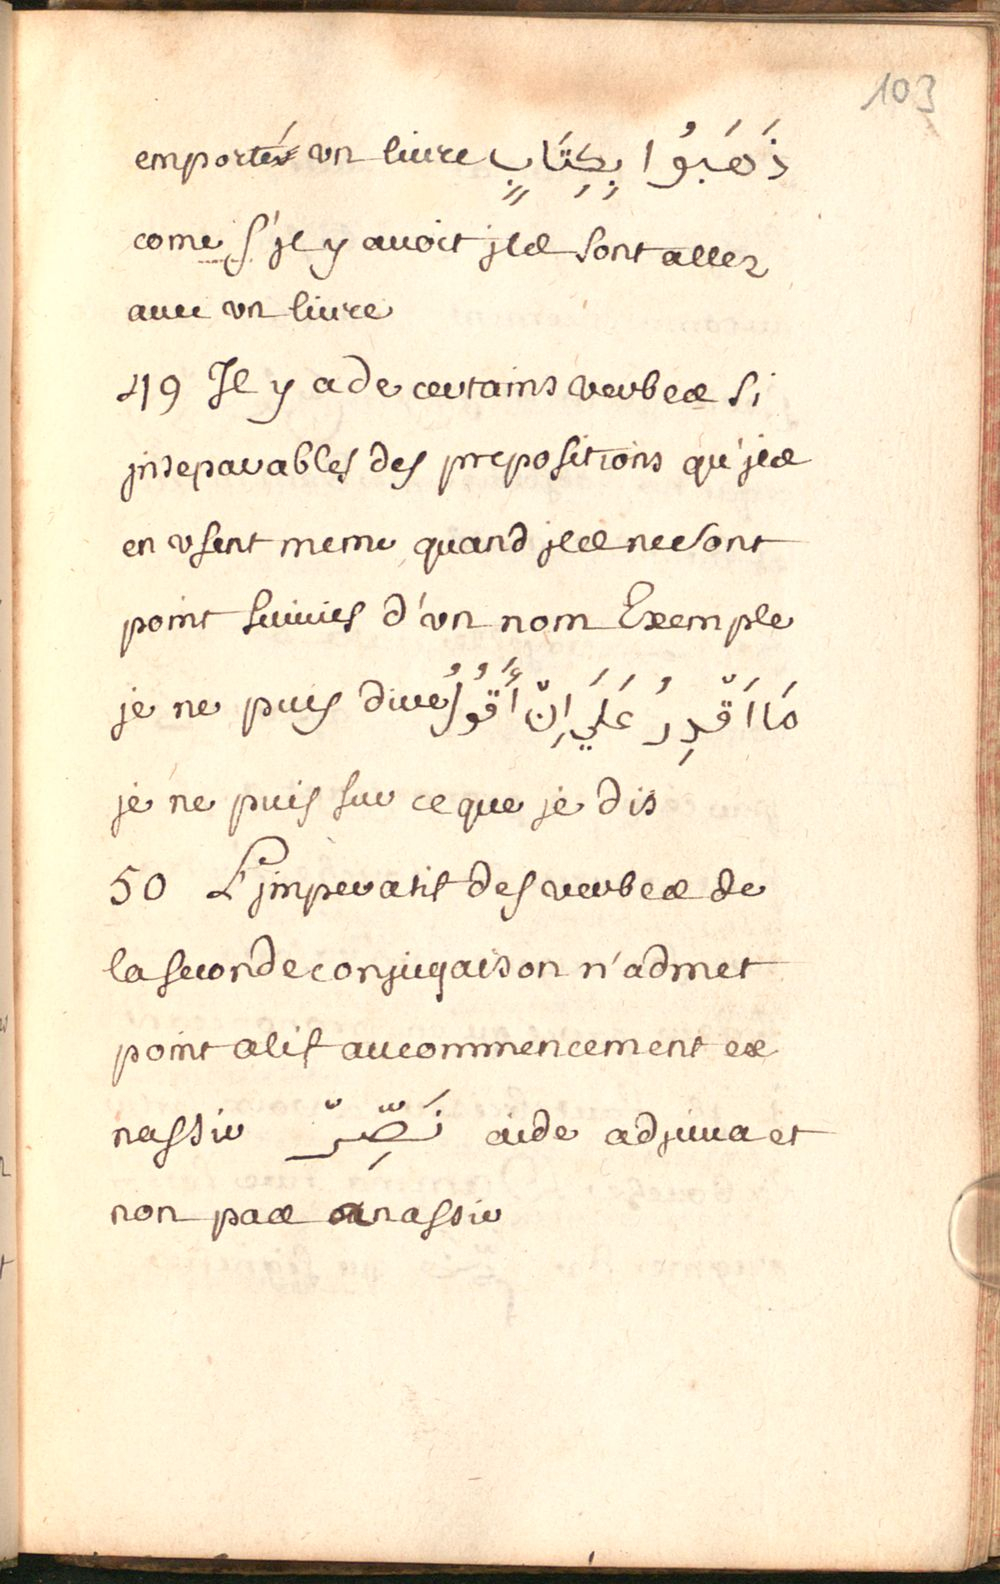 103
emporté vn liure ذَهَبُوا بِكِتَابٍ
come s'jl y auoit jls sont allez
auec vn liure
49 Il y a de certains verbes si
jnseparables des prepositions qu'jls
en vsent meme quand jls ne sont
point suiuies d'vn nom Exemple
je ne puis dire مَا اَقْدِرُ عَلَي اِنّ اَقُوُلُ
je ne puis sur ce que je dis
50 L'jmperatif des verbes de
la seconde conjugaison n'admet
point alif au commencement ex
nassir نَصِّرْ aide adjuua et
non pas anassir